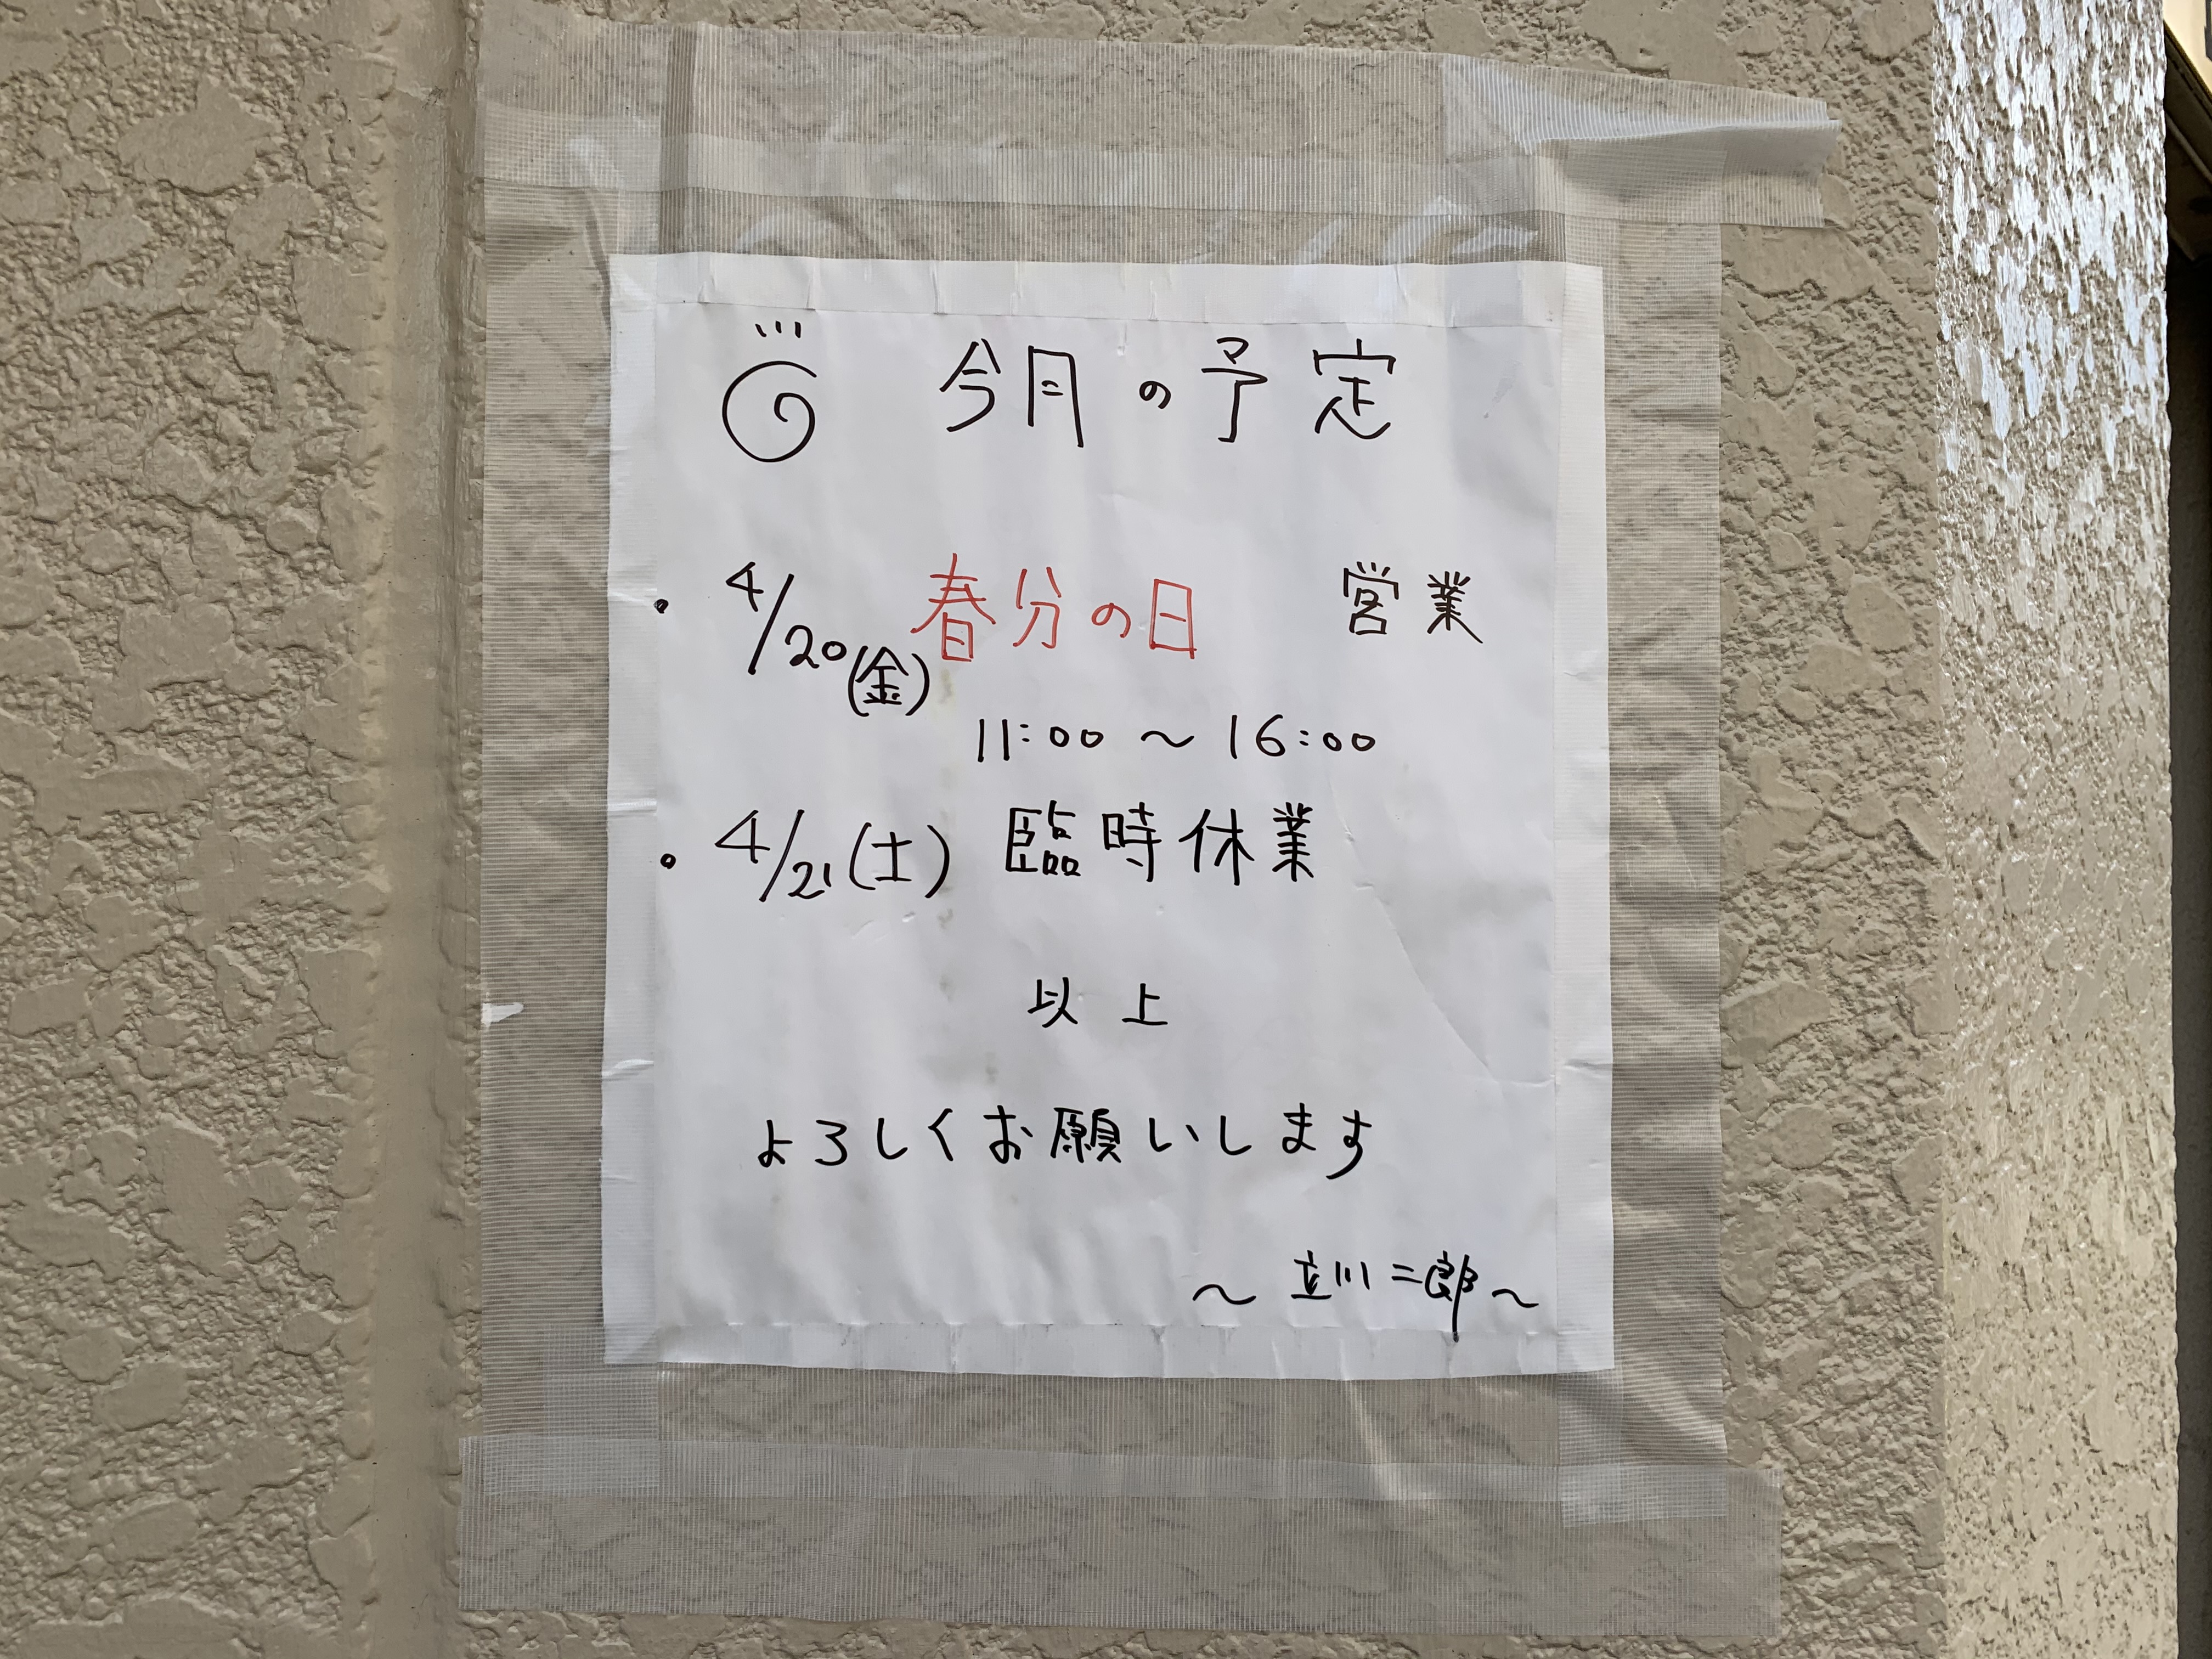 今月の予定
・4/20(金) 春分の日 営業
11:00〜16:00
・4/21(土) 臨時休業
以上
よろしくお願いします
〜立川二郎〜